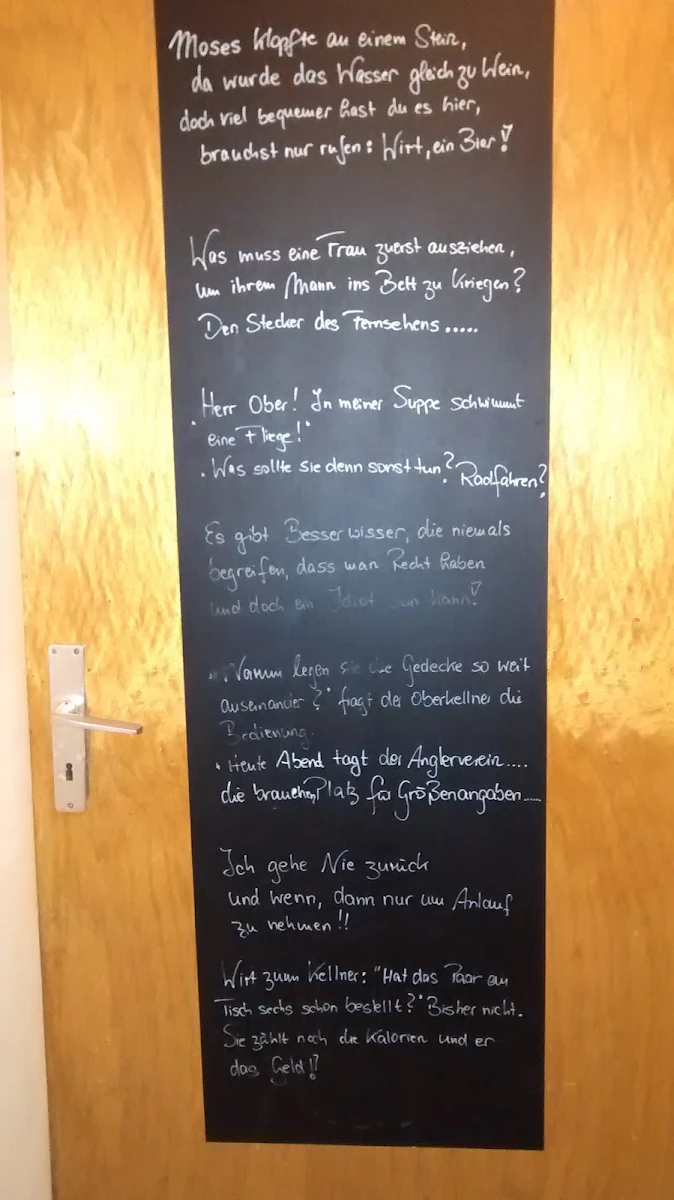 Moses klopfte an einem Stein,
da wurde das Wasser gleich zu Wein,
doch viel bequemer hast du es hier,
brauchst nur rufen: Wirt, ein Bier!
Was muss eine Frau zuerst ausziehen,
um ihrem Mann ins Bett zu kriegen?
Den Stecker des Fernsehens.....
"Herr Ober! In meiner Suppe schwimmt
eine Fliege!"
"Was sollte sie denn sonst tun? Radfahren?
Es gibt Besserwisser, die niemals
begreifen, dass man Recht haben
und doch ein Idiot sein kann!
"Warum legen Sie die Gedecke so weit
auseinander?" fragt der Oberkellner die
Bedienung.
"Heute Abend tagt der Anglerverein....
die brauchen Platz für Größenangaben.....
Ich gehe Nie zurück
und wenn, dann nur um Anlauf
zu nehmen!!
Wirt zum Kellner: "Hat das Paar an
Tisch sechs schon bestellt?" Bisher nicht.
Sie zählt noch die Kalorien und er
das Geld!!